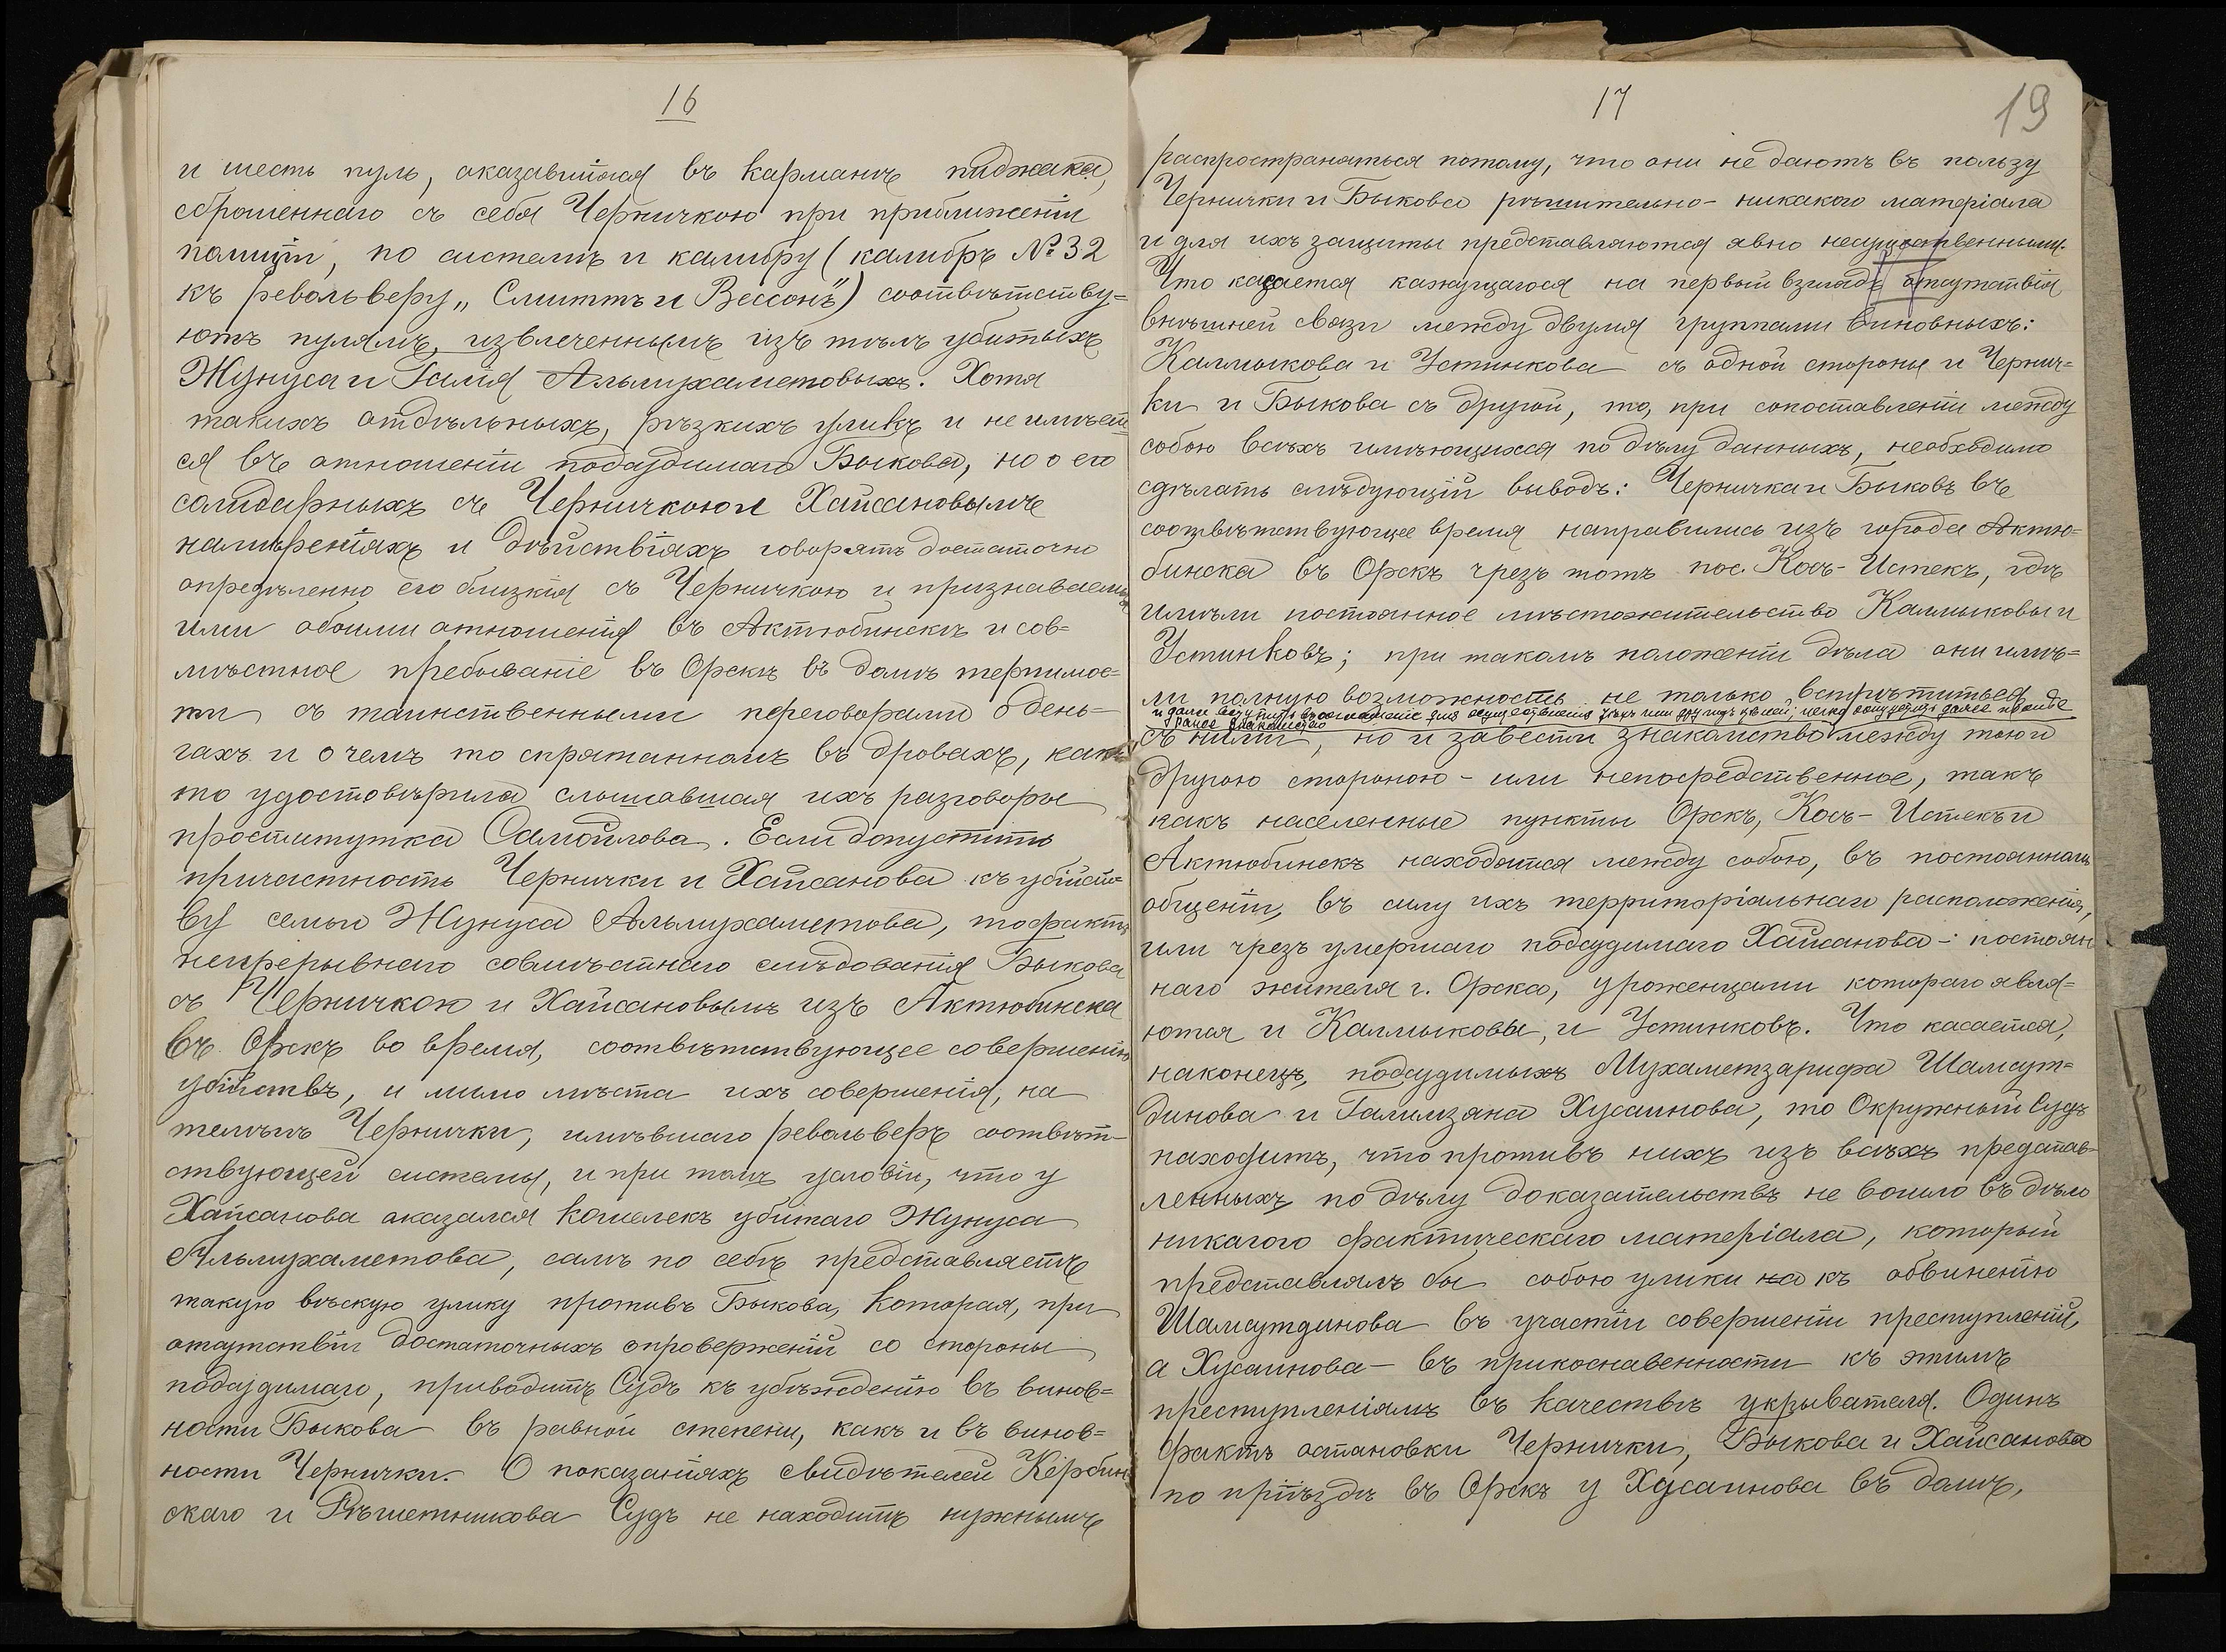 16
и шесть пуль, оказавшіяся въ карманѣ пиджака,
сброшеннаго съ себя Черничкою при приближеніи
полиціи, по системѣ и калибру (калибръ № 32
къ револьверу „Смиттъ и Вессонъ") соотвѣтству=
ютъ пулямъ, извлеченнымъ изъ тѣлъ убитыхъ
Жунуса и Галія Альмухаметовыхъ. Хотя
такихъ отдѣльныхъ, рѣзкихъ уликъ и не имѣет=
ся въ отношеніи подсудимаго Быкова, но о его
солидарныхъ съ Черничкою и Хайсановымъ
намѣреніяхъ и дѣйствіяхъ говорятъ достаточно
опредѣленно его близкія съ Черничкою и признаваемыя
ими обоими отношенія въ Актюбинскѣ и сов=
мѣстное пребываніе въ Орскѣ въ домѣ терпимос=
ти съ таинственными переговорами о день=
гахъ и о чемъ то спрятанномъ въ дровахъ, какъ
то удостовѣрила слышавшая ихъ разговоры
проститутка Самойлова. Если допустить
причастность Чернички и Хайсанова къ убійст=
ву семьи Жунуса Альмухаметова, то фактъ
непрерывнаго совмѣстнаго слѣдованія Быкова
съ Черничкою и Хайсановымъ изъ Актюбинска
въ Орскъ во время, соотвѣтствующее совершенію
убійствъ, и мимо мѣста ихъ совершенія, на
Чернички, имѣвшаго револьверъ соотвѣт=
ствующей системы, и при томъ условіи, что у
Хайсанова оказался кошелекъ убитаго Жунуса
Альмухаметова, самъ по себѣ представляетъ
такую вѣскую улику противъ Быкова, которая, при
отсутствіи достаточныхъ опроверженій со стороны
подсудимаго, приводитъ Судъ къ убѣжденію въ винов=
ности Быкова въ равной степени, какъ и въ винов=
ности Чернички. О показаніяхъ свидѣтелей Кербин
скаго и Рѣшетникова Судъ не находитъ нужнымъ
17
19
распространяться потому, что они не даютъ въ пользу
Чернички и Быкова рѣшительно никакого матеріала
и для ихъ защиты представляются явно несущественными.
Что касается кажущагося на первый взглядъ отсутствія
внѣшней связи между двумя группами виновныхъ:
Калмыкова и Устинкова съ одной стороны и Чернич=
ки и Быкова съ другой, то, при сопоставленіи между
собою всѣхъ имѣющихся по дѣлу данныхъ, необходимо
сдѣлать слѣдующій выводъ: Черничка и Быковъ въ
соотвѣтствующее время направились изъ города Актю=
бинска въ Орскъ чрезъ тотъ пос. Косъ-Истекъ, гдѣ
имѣли постоянное мѣстожительство Калмыковы и
Устинковъ; при такомъ положеніи дѣла они имѣ=
ли полную возможность не только встрѣтиться
и даже вступить въ соглашеніе для осуществленія тѣхъ или другихъ цѣлей;
ранее знакомство
съ ними, но и завести знакомство между тою и
другою стороною - или непосредственное, такъ
какъ населенные пункты Орскъ, Косъ-Истекъ и
Актюбинскъ находятся между собою, въ постоянномъ
общеніи, въ силу ихъ территоріальнаго расположенія,
или чрезъ умершаго подсудимаго Хайсанова - постоян
наго жителя г. Орска, уроженцами котораго явля=
ются и Калмыковы, и Устинковъ. Что касается,
наконецъ, подсудимыхъ Мухаметзарифа Шамсут=
динова и Галимзяна Хусаинова, то Окружный Судъ
находитъ, что противъ нихъ изъ всѣхъ представ=
ленныхъ по дѣлу доказательствъ не вошло въ дѣло
никакого фактическаго матеріала, который
представлялъ бы собою улики на къ обвиненію
Шамсутдинова въ участіи совершеніи преступленій,
а Хусаинова - въ прикосновенности къ этимъ
преступленіямъ въ качествѣ укрывателя. Одинъ
фактъ остановки Чернички, Быкова и Хайсанова
по пріѣздѣ въ Орскъ у Хусаинова въ домѣ,